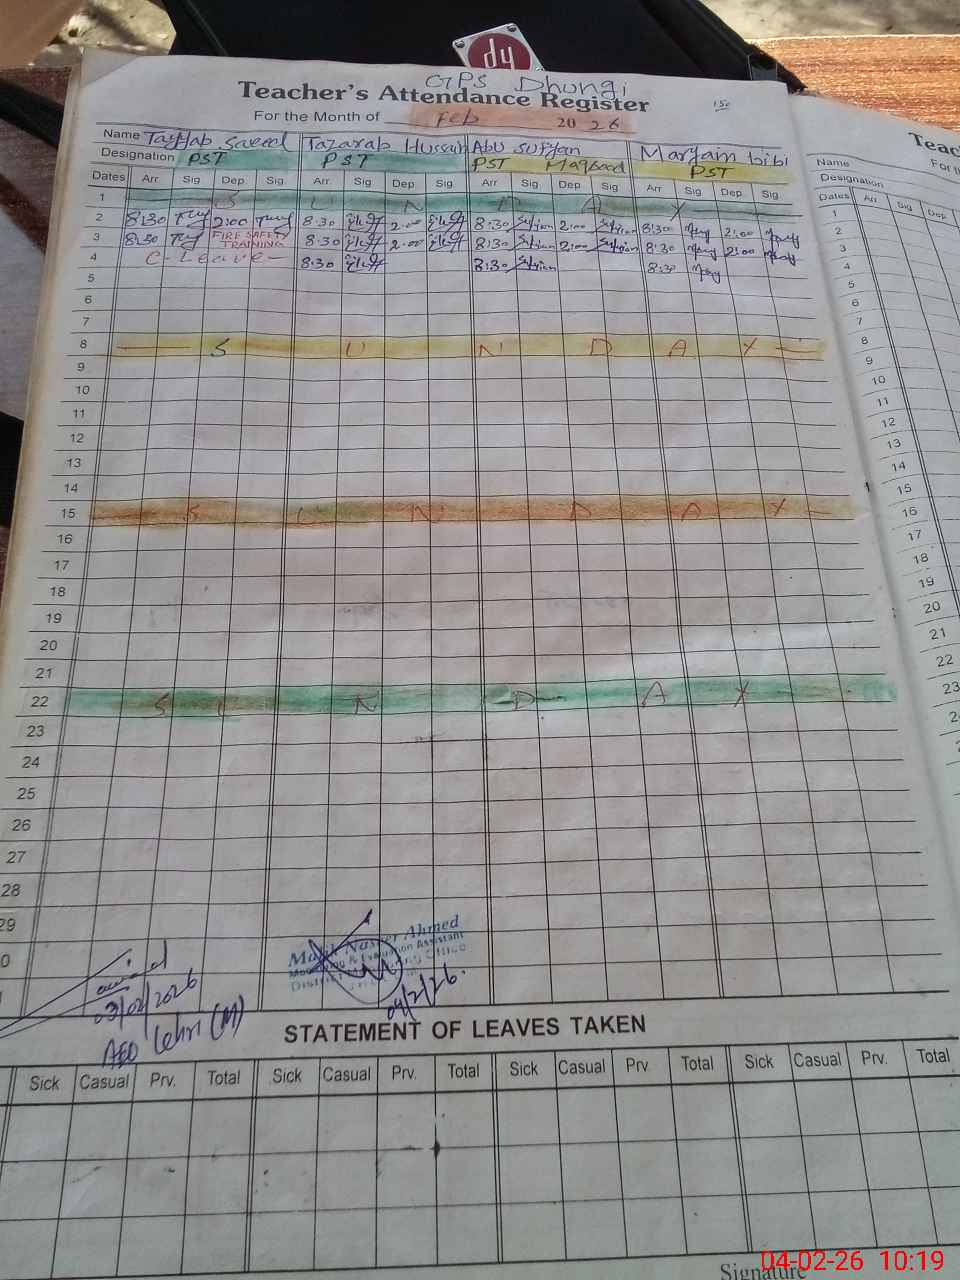 dy
GPS Dhongi
Teacher's Attendance Register
150
For the Month of Feb 2026
Name Tayyab Saeed Tazarab Hussain Abu Sufyan Maryam bibi
Designation PST PST PST Maqsood PST
Dates Arr Sig Dep Sig Arr. Sig Dep. Sig Arr Sig Dep Sig Arr Sig Dep Sig
1 S U N D A Y
2 8:30 2:00 8:30 2:00 8:30 Sufyan 2:00 Sufyan 8:30 2:00
3 8:30 FIRE SAFETY TRAINING 8:30 2:00 8:30 Sufyan 2:00 Sufyan 8:30 2:00
4 C-Leave- 8:30 8:30 Sufyan 8:30
5
6
7
8 S U N D A Y
9
10
11
12
13
14
15 S U N D A Y
16
17
18
19
20
21
22 S U N D A Y
23
24
25
26
27
28
29
0
03/02/2026
AEO Lehri (M)
Malik Naseer Ahmed
Monitoring & Evaluation Assistant
04/2/26.
STATEMENT OF LEAVES TAKEN
Sick Casual Prv. Total Sick Casual Prv. Total Sick Casual Prv. Total Sick Casual Prv. Total
Signature
Teac
Name For th
Designation
Dates Arr Sig Dep
1
2
3
4
5
6
7
8
9
10
11
12
13
14
15
16
17
18
19
20
21
22
23
04-02-26 10:19